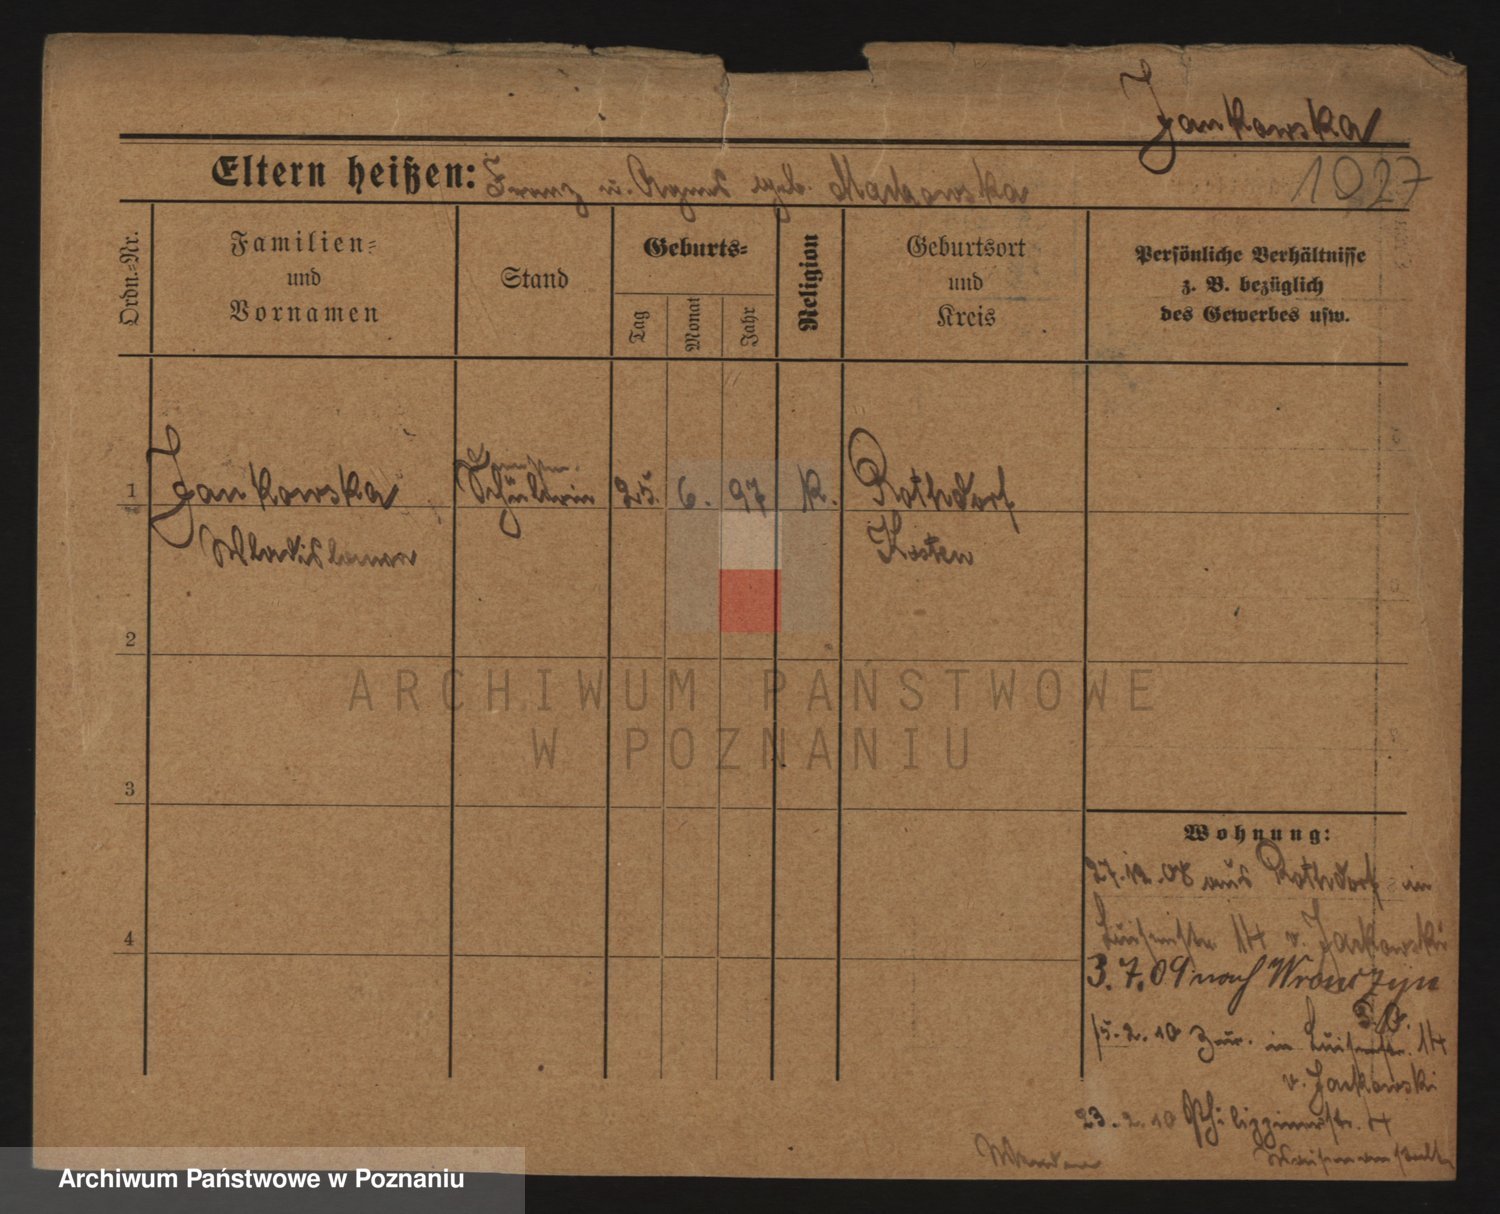 Jankowska
1027
Eltern heißen: Franz u. Agnes geb. Makowska
Ordn.-Nr.
Familien-
und
Vornamen
Stand
Geburts-
Tag
Monat
Jahr
Religion
Geburtsort
und
Kreis
Persönliche Verhältnisse
z. B. bezüglich
des Gewerbes usw.
1 Jankowska Schülerin 25. 6. 97 k. Rothdorf
Wladislawa Kosten
2
3
4
Wohnung:
27.12.08 aus Rothdorf in
Luisenstr. 14 v. Jankowski
3.7.09 nach Wronczyn
P. O.
15.2.10 Zur. in Luisenstr. 14
v. Jankowski
23.2.10 Philippinenstr. 4
Waisenanstalt
ARCHIWUM PAŃSTWOWE
W POZNANIU
Archiwum Państwowe w Poznaniu